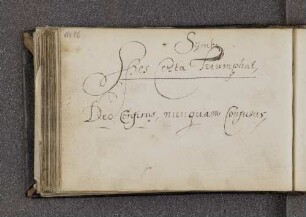 Symb.
Spes Certa Triumphat,
Deo Confisus, nunquam Confusus,